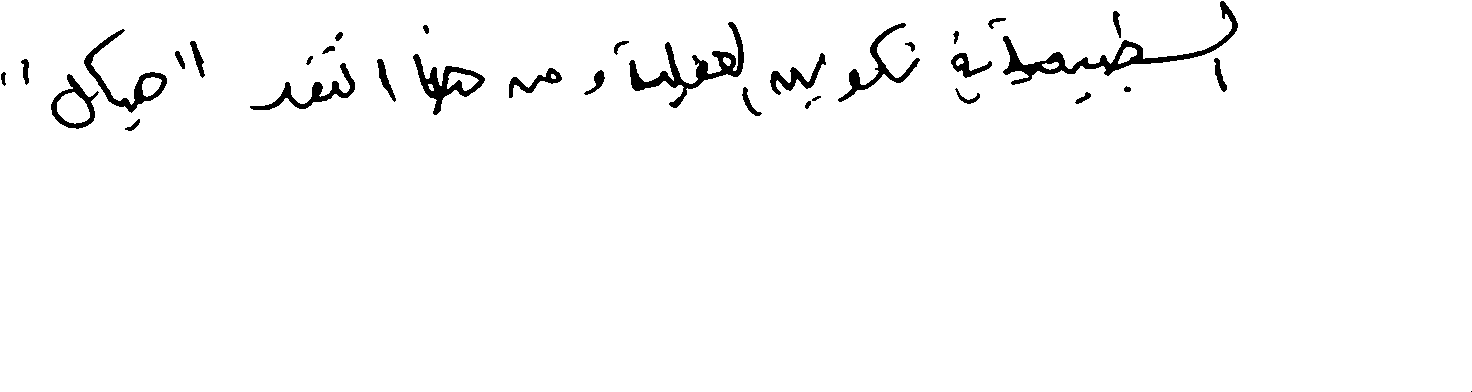 الطبيعة في تكوين العقلية ومن هنا انتقد "هيكل"